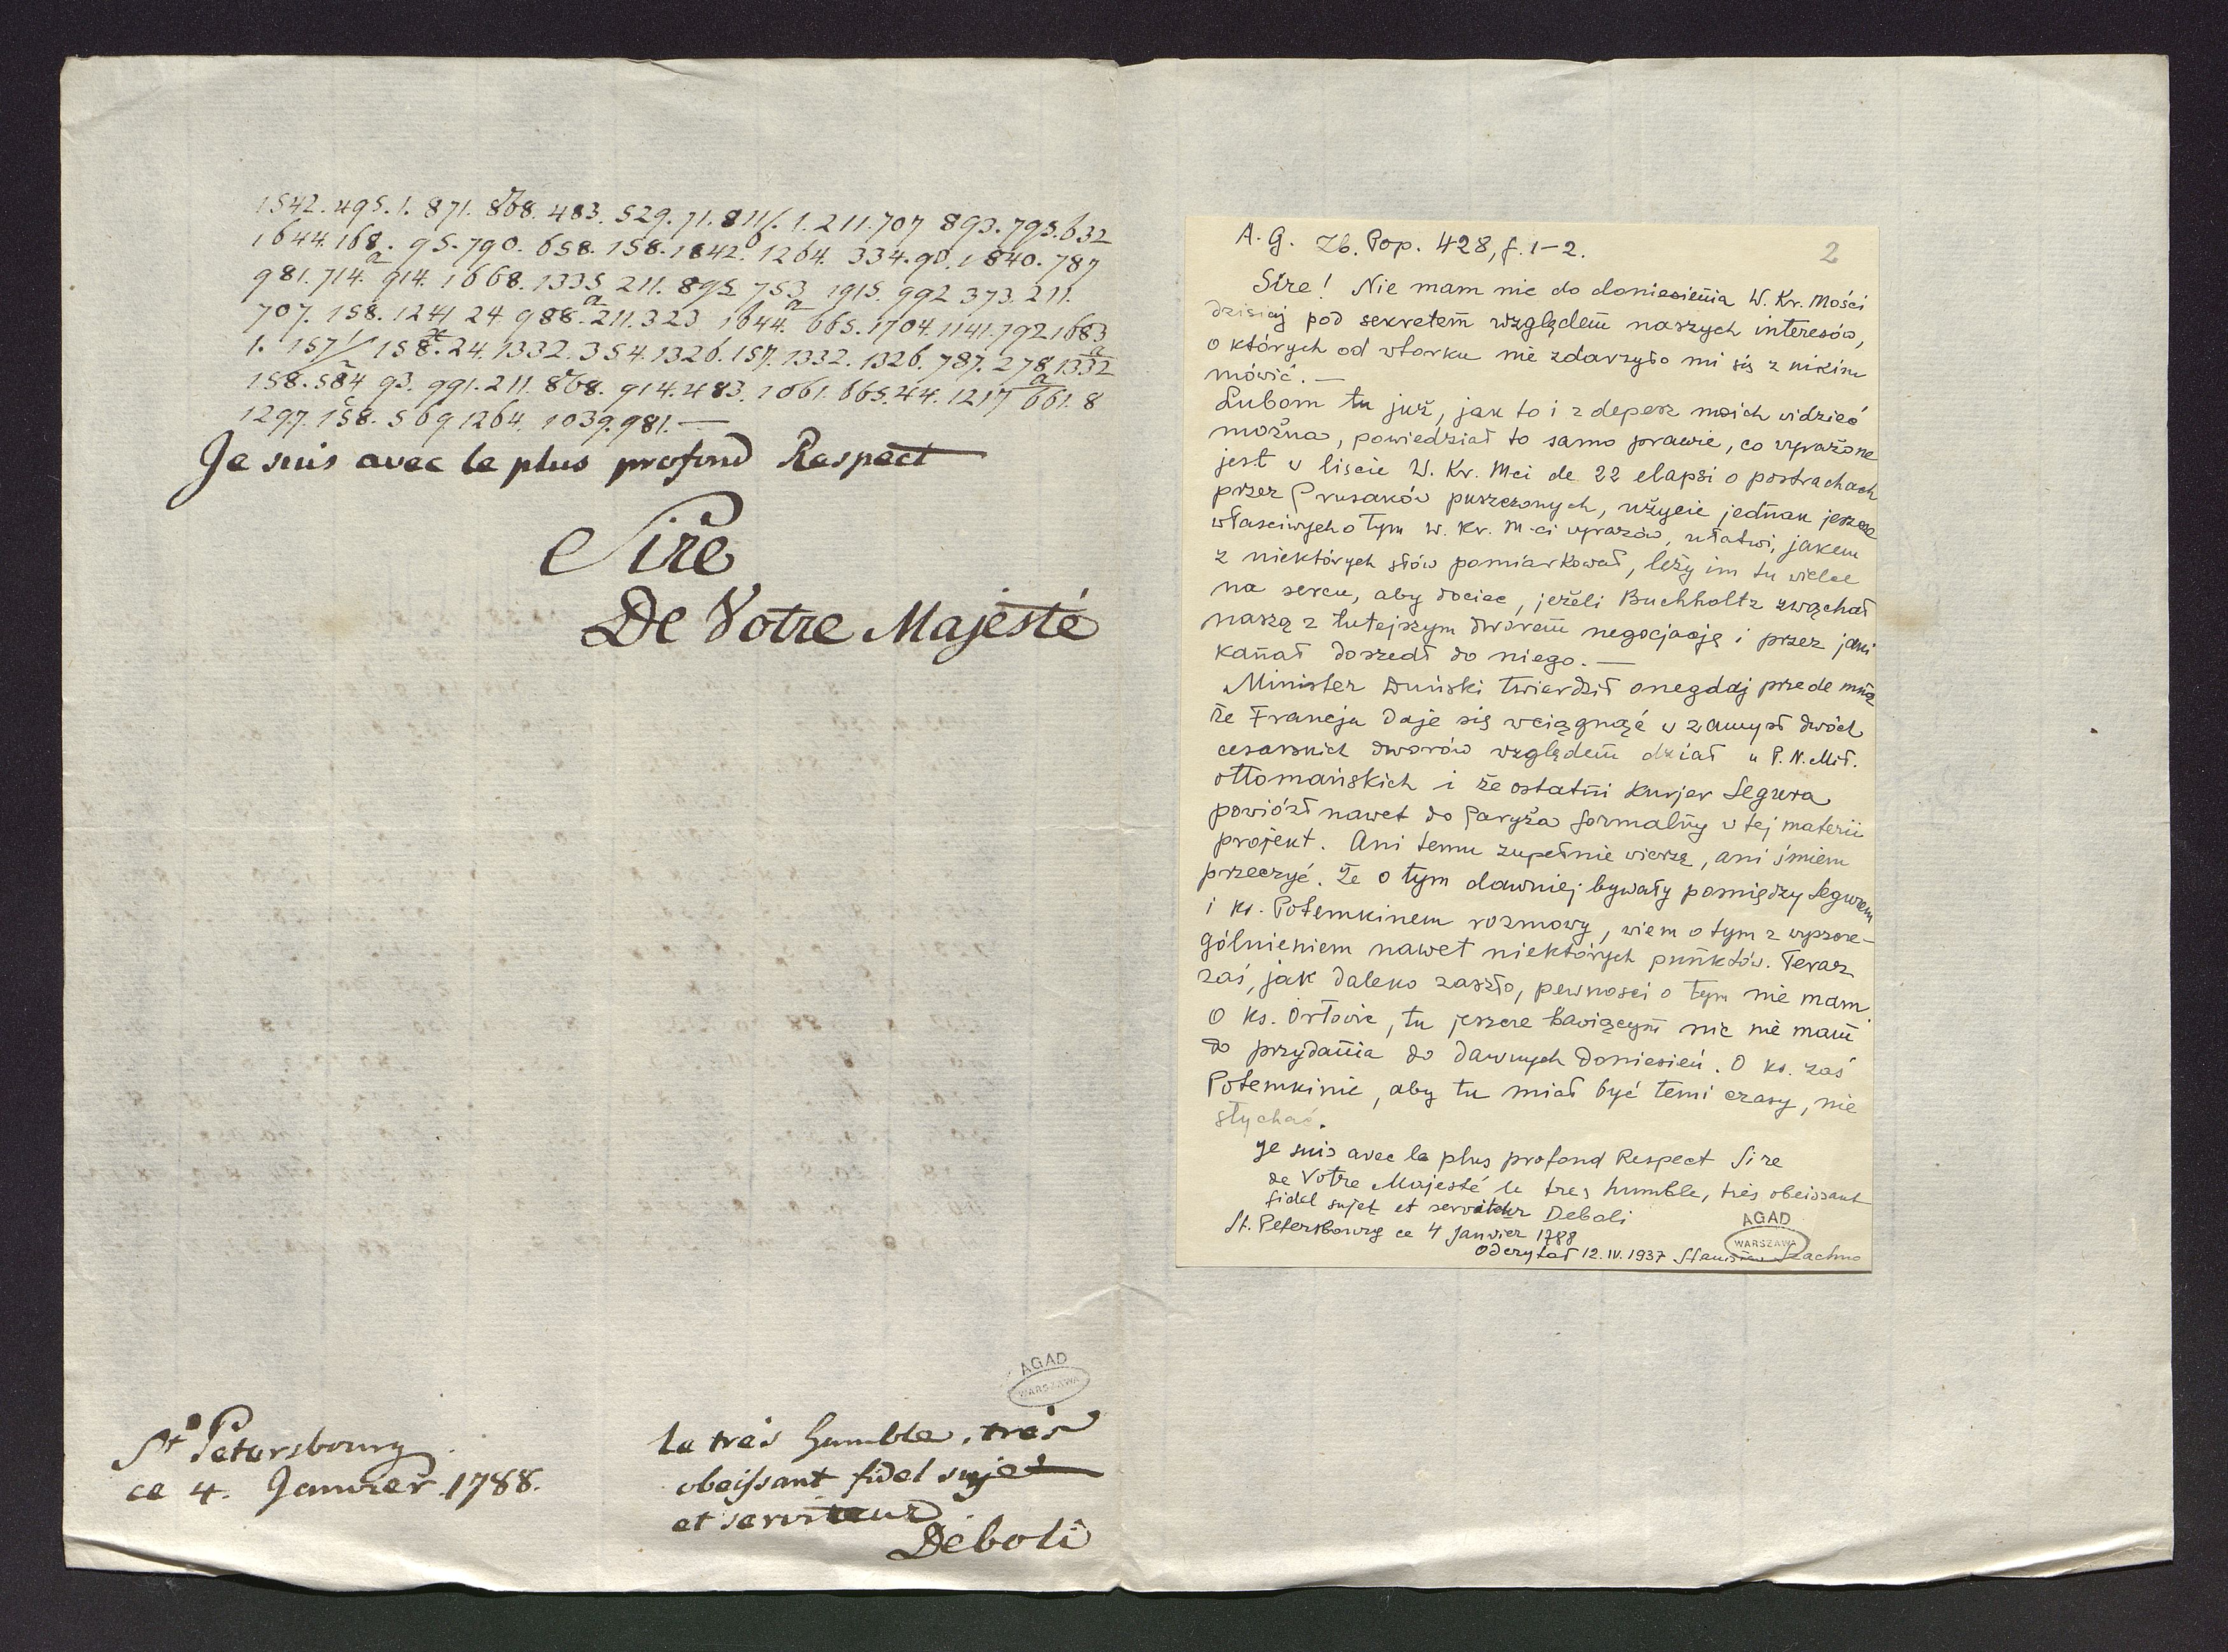 1542. 495. 1. 871. 868. 483. 529. 71. 811/. 1. 211. 707 893. 795. 632
1644. 168. 95. 790. 658. 158. 1842. 1264. 334. 90. 1840. 787
981. 714. 914. 1668. 1335 211. 895 753 1915. 992 373. 211.
707. 158. 1241 24. 988. 211. 323 1644. 665. 1704. 1141. 792 1683
1. 157/ 158. 24. 1332. 354. 1326. 157. 1332. 1326. 787. 278. 1332
158. 584 93. 991. 211. 868. 914. 483. 1061. 665. 44. 1217 661. 8
1297. 158. 569. 1264. 1039. 981.—
Je suis avec le plus profond Respect
Sire
De Votre Majesté
St Petersbourg
ce 4. Janvier. 1788.
AGAD
WARSZAWA
le très humble, très
obeissant fidel sujet
et serviteur
Deboli
A. G. Zb. Pop. 428, f. 1-2.
2
Sire! Nie mam nic do doniesienia W. Kr. Mości
dzisiaj pod sekretem względem naszych interesów,
o których od wtorku nie zdarzyło mi się z nikim
mówić.—
Lubom tu już, jak to i z depesz moich widzieć
można, powiedział to samo prawie, co wyrażone
jest w liście W. Kr. Mci de 22 elapsi o postrachach
przez Prusaków puszczonych, użycie jednak jeszcze
właściwych o tym W. Kr. M-ci wyrazów, ułatwi, jakem
z niektórych słów pomiarkował, leży im tu wielce
na sercu, aby dociec, jeżeli Buchholtz zwąchał
naszą z tutejszym dworem negocjację i przez jaki
kanał doszedł do niego.—
Minister Duński twierdził onegdaj przede mną
że Francja daje się wciągnąć w zamysł dwóch
cesarskich dworów względem dział u P. N. Mił.
ottomańskich i że ostatni kurjer Segura
powiózł nawet do Paryża formalny w tej materii
projekt. Ani temu zupełnie wierzę, ani śmiem
przeczyć. Że o tym dawniej bywały pomiędzy Segurem
i ks. Potemkinem rozmowy, wiem o tym z wyszcze-
gólnieniem nawet niektórych punktów. Teraz
zaś, jak daleko zaszło, pewności o tym nie mam.
O ks. Orłowie, tu jeszcze bawiącym nic nie mam
do przydania do dawnych doniesień. O ks. zaś
Potemkinie, aby tu miał być temi czasy, nie
słychać.
Je suis avec le plus profond Respect Sire
de Votre Majesté le tres humble, très obeissant
fidel sujet et serviteur Deboli
St. Petersbourg ce 4 Janvier 1788
AGAD
WARSZAWA
Odczytał 12. IV. 1937 Stanisław Szachno